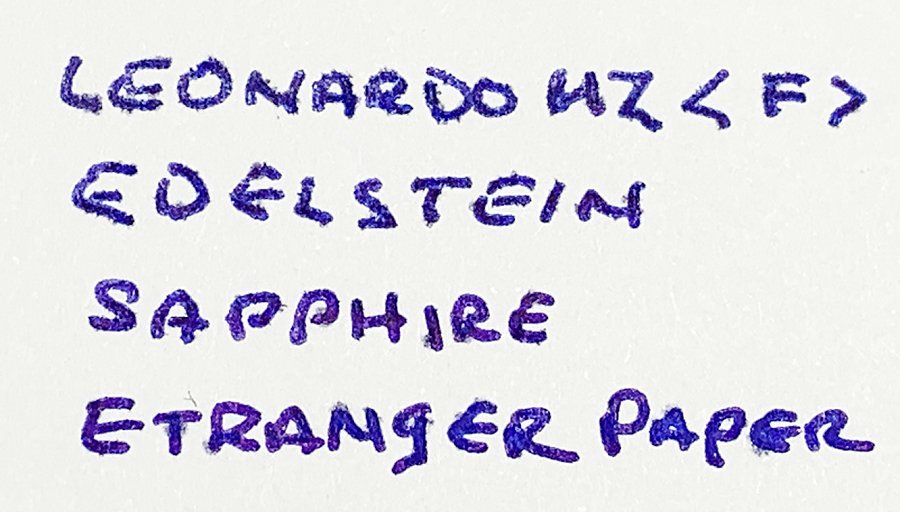 LEONARDO MZ <F>
EDELSTEIN
SAPPHIRE
ETRANGER PAPER